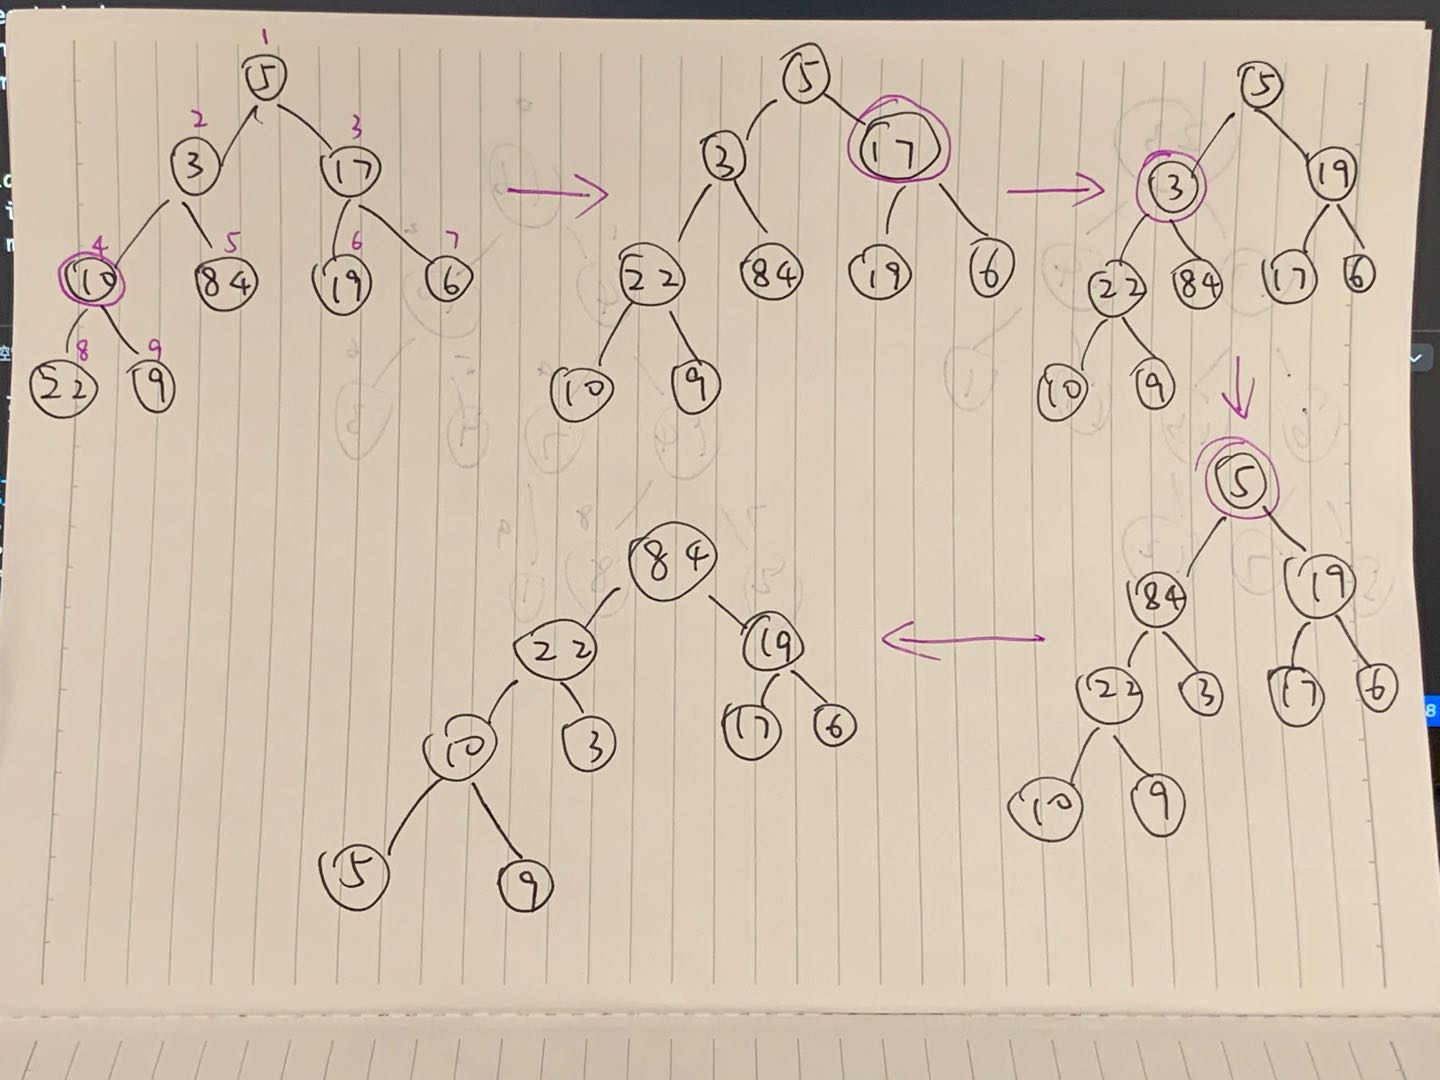 1
5
2 3
3 17
4 5 6 7
10 84 19 6
8 9
22 9
5
3 17
22 84 19 6
10 9
5
3 19
22 84 17 6
10 9
5
84 19
22 3 17 6
10 9
84
22 19
10 3 17 6
5 9